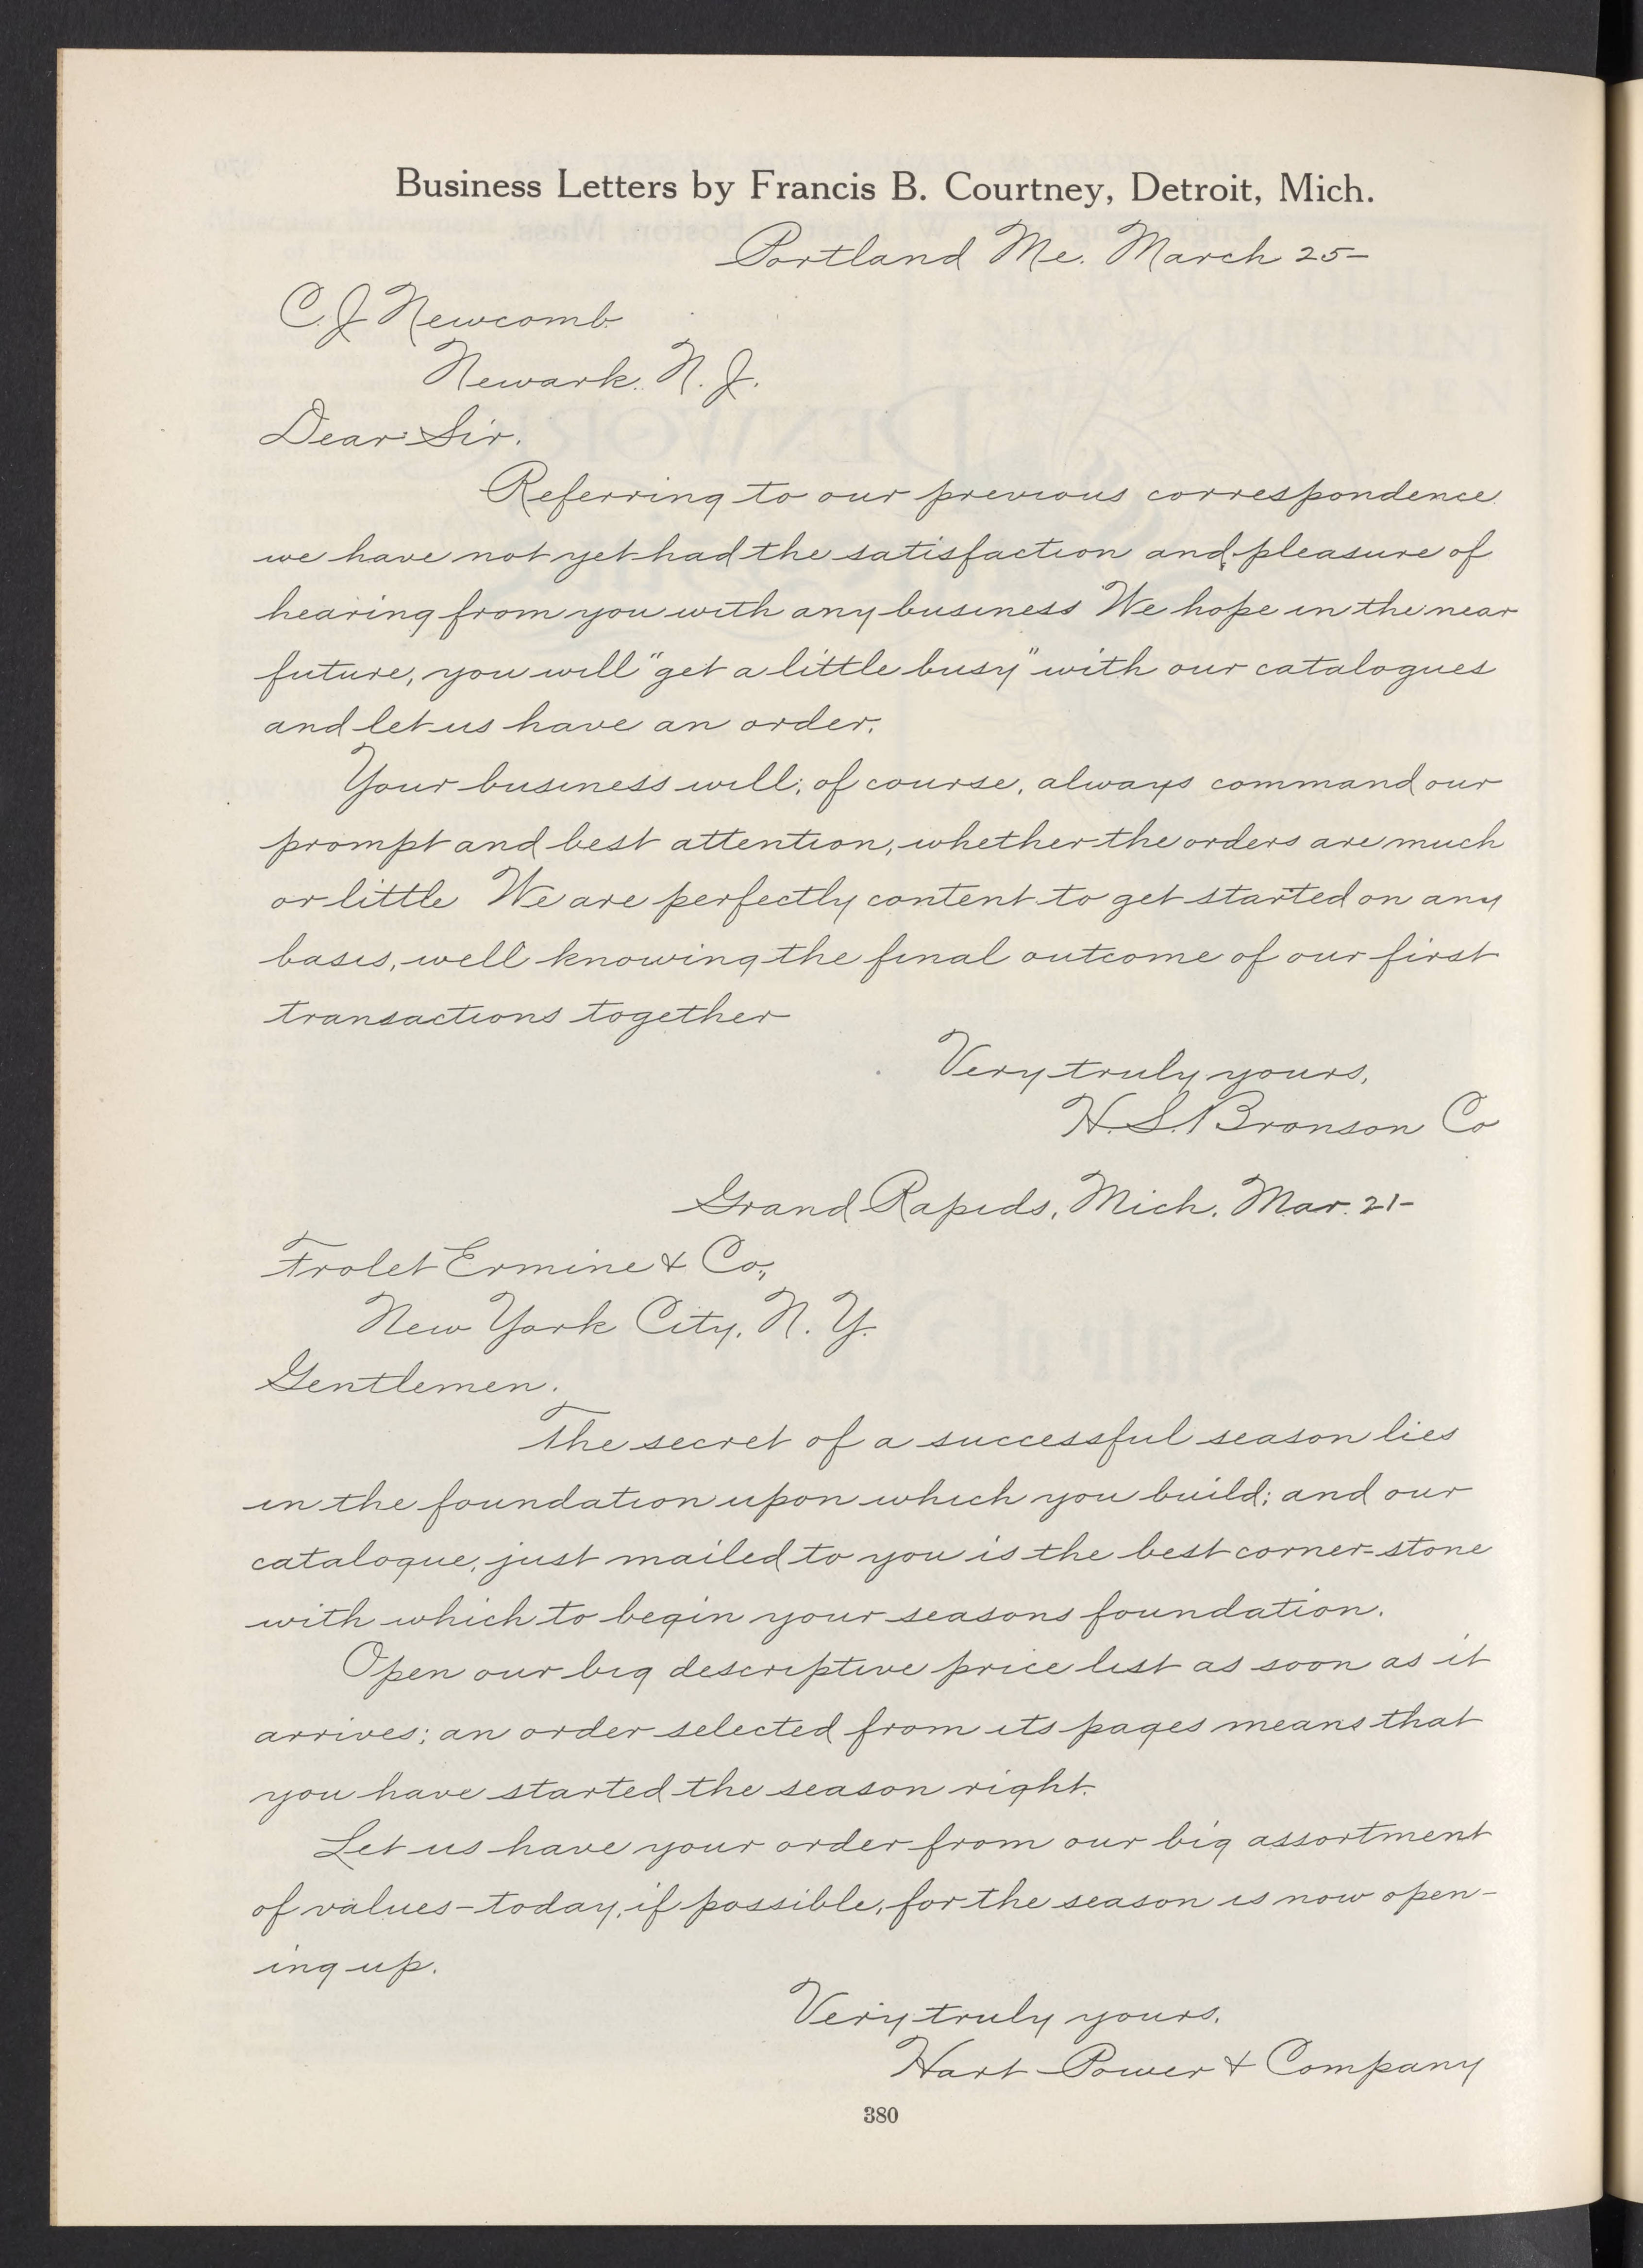 Business Letters by Francis B. Courtney, Detroit, Mich.
Portland Me. March 25-
C. J. Newcomb
Newark. N. J.
Dear Sir.
Referring to our previous correspondence
we have not yet had the satisfaction and pleasure of
hearing from you with any business We hope in the near
future, you will "get a little busy" with our catalogues
and let us have an order.
Your business will, of course, always command our
prompt and best attention, whether the orders are much
or little We are perfectly content to get started on any
basis, well knowing the final outcome of our first
transactions together
Very truly yours,
H. S. Bronson Co
Grand Rapids, Mich. Mar. 21-
Frolet Ermine & Co.,
New York City, N. Y.
Gentlemen.
The secret of a successful season lies
in the foundation upon which you build; and our
catalogue, just mailed to you is the best corner-stone
with which to begin your seasons foundation.
Open our big descriptive price list as soon as it
arrives; an order selected from its pages means that
you have started the season right.
Let us have your order from our big assortment
of values - today, if possible, for the season is now open-
ing up.
Very truly yours.
Hart Power & Company
380